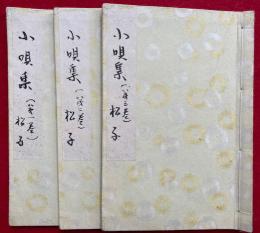 小唄集（第一巻）
松子
小唄集（第二巻）
松子
小唄集（第三巻）
松子